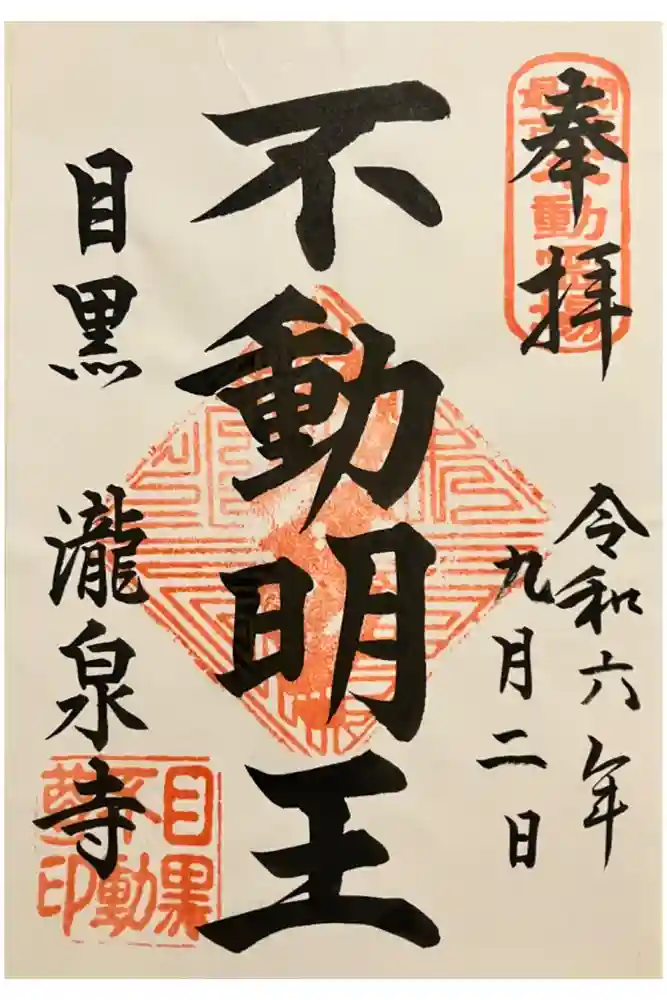 奉拝
令和六年
九月二日
不動明王
目黒 瀧泉寺
目黒
不動
尊印